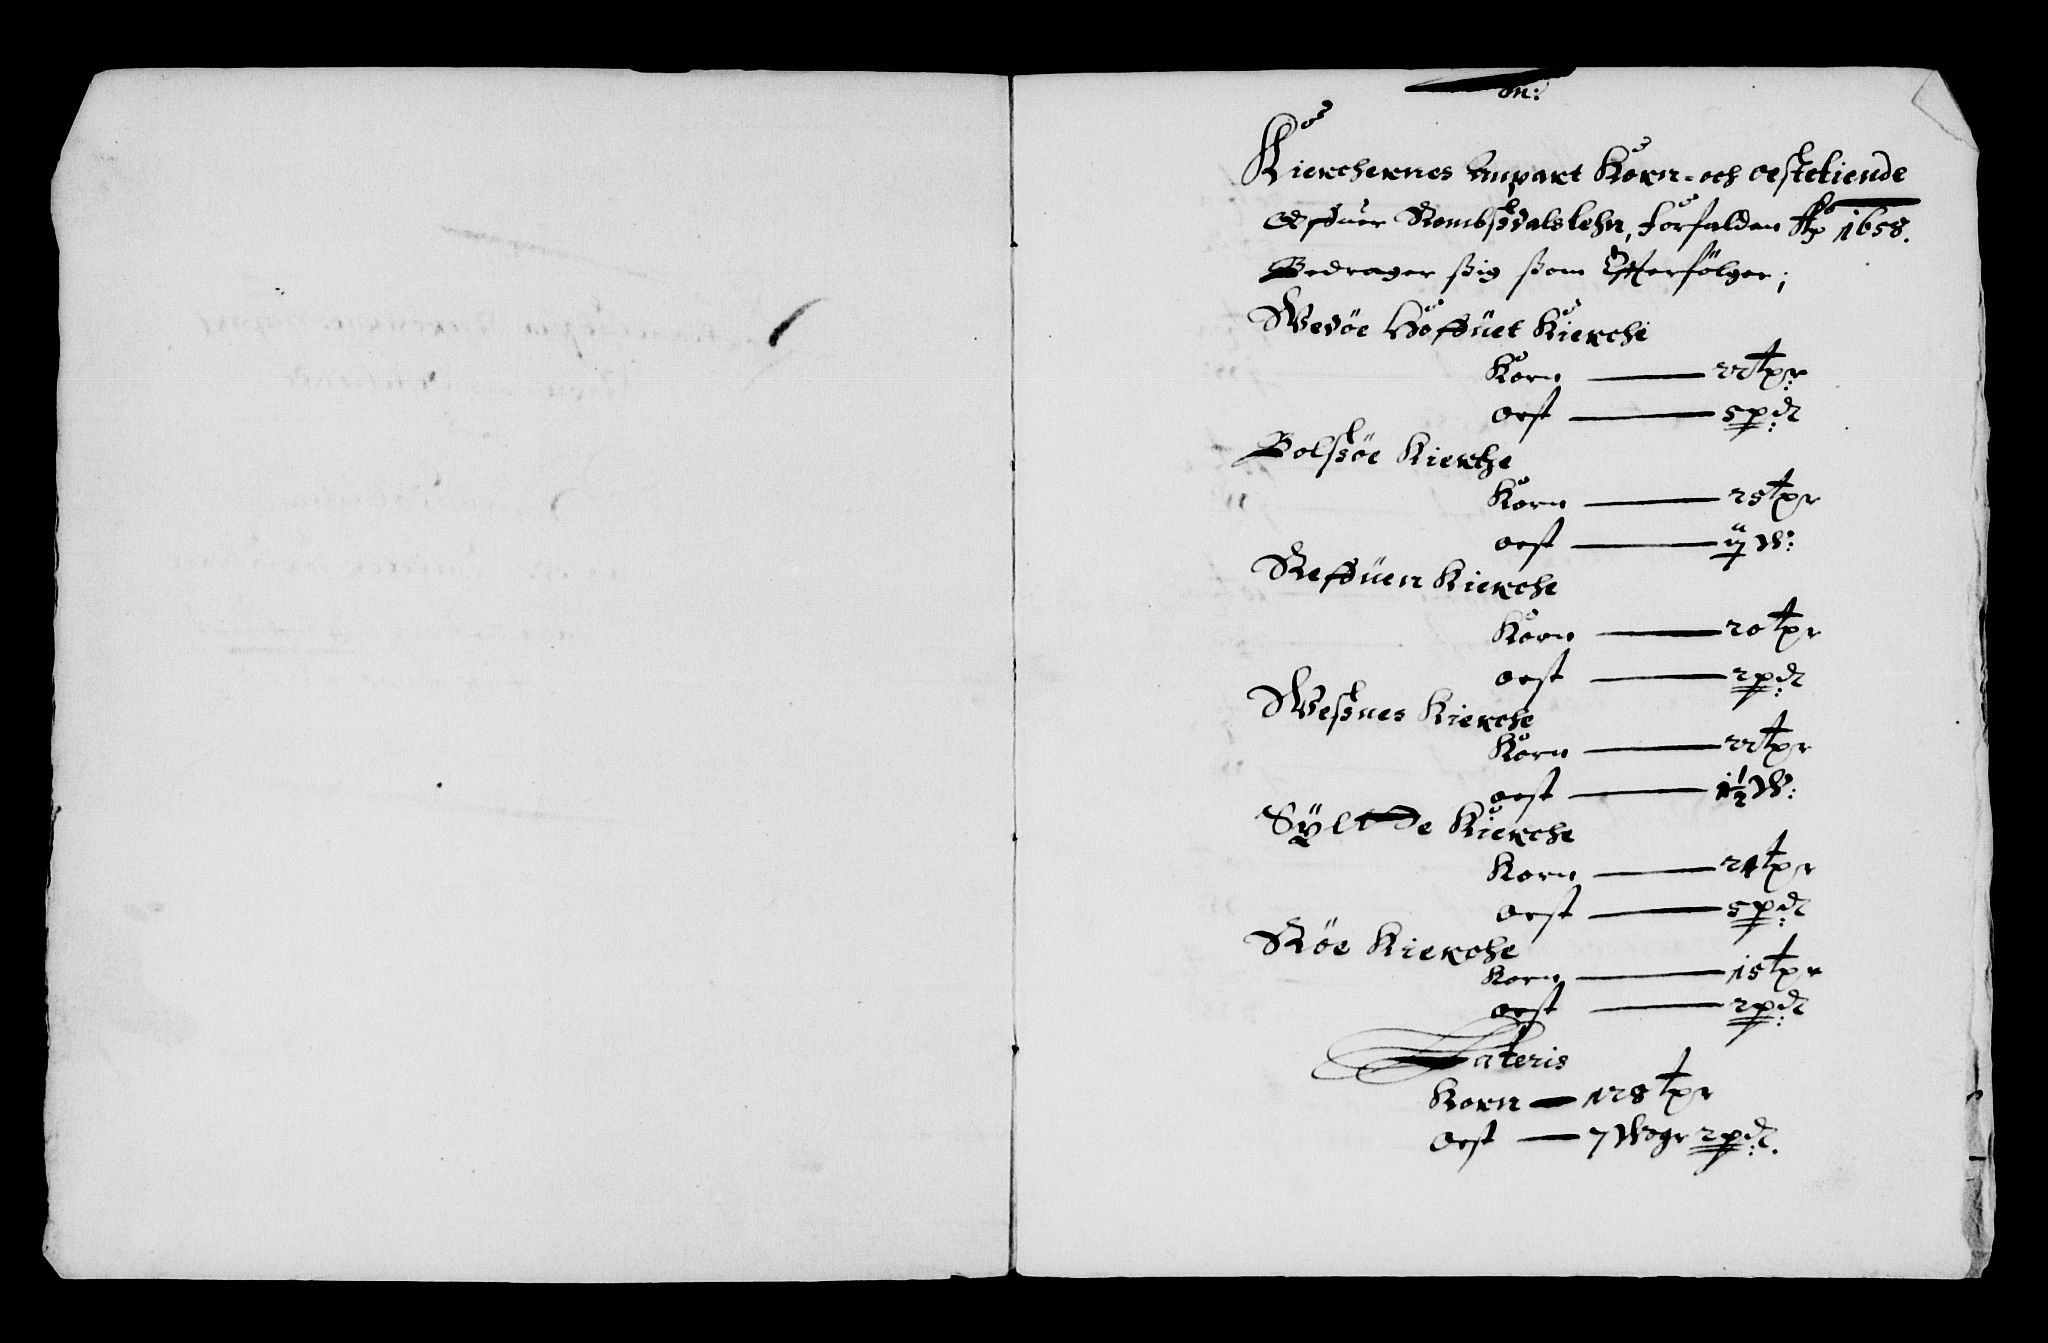 m:
Kierchernes Anpart Korn- och oestetiende
Offuer Rombßdalslehn, forfalden Ao 1658.
Bedrager ßig ßom Efterfölger;
Wedöe Hoffuet Kierche
Korn — 22 tpr:
oest — 5 pd:
Bolßöe Kierche
Korn — 25 tpr
oest — ij W:
Reffuen Kierche
Korn — 20 tpr
oest — 2 pd:
Weßnes Kierche
Korn — 22 tpr
oest — 1½ W:
Sylt de Kierche
Korn — 24 tpr
oest — 5 pd:
Röe Kierche
Korn — 15 tpr
oest — 2 pd:
Lateris
Korn — 128 tpr
oest — 7 Wogr 2 pd:.